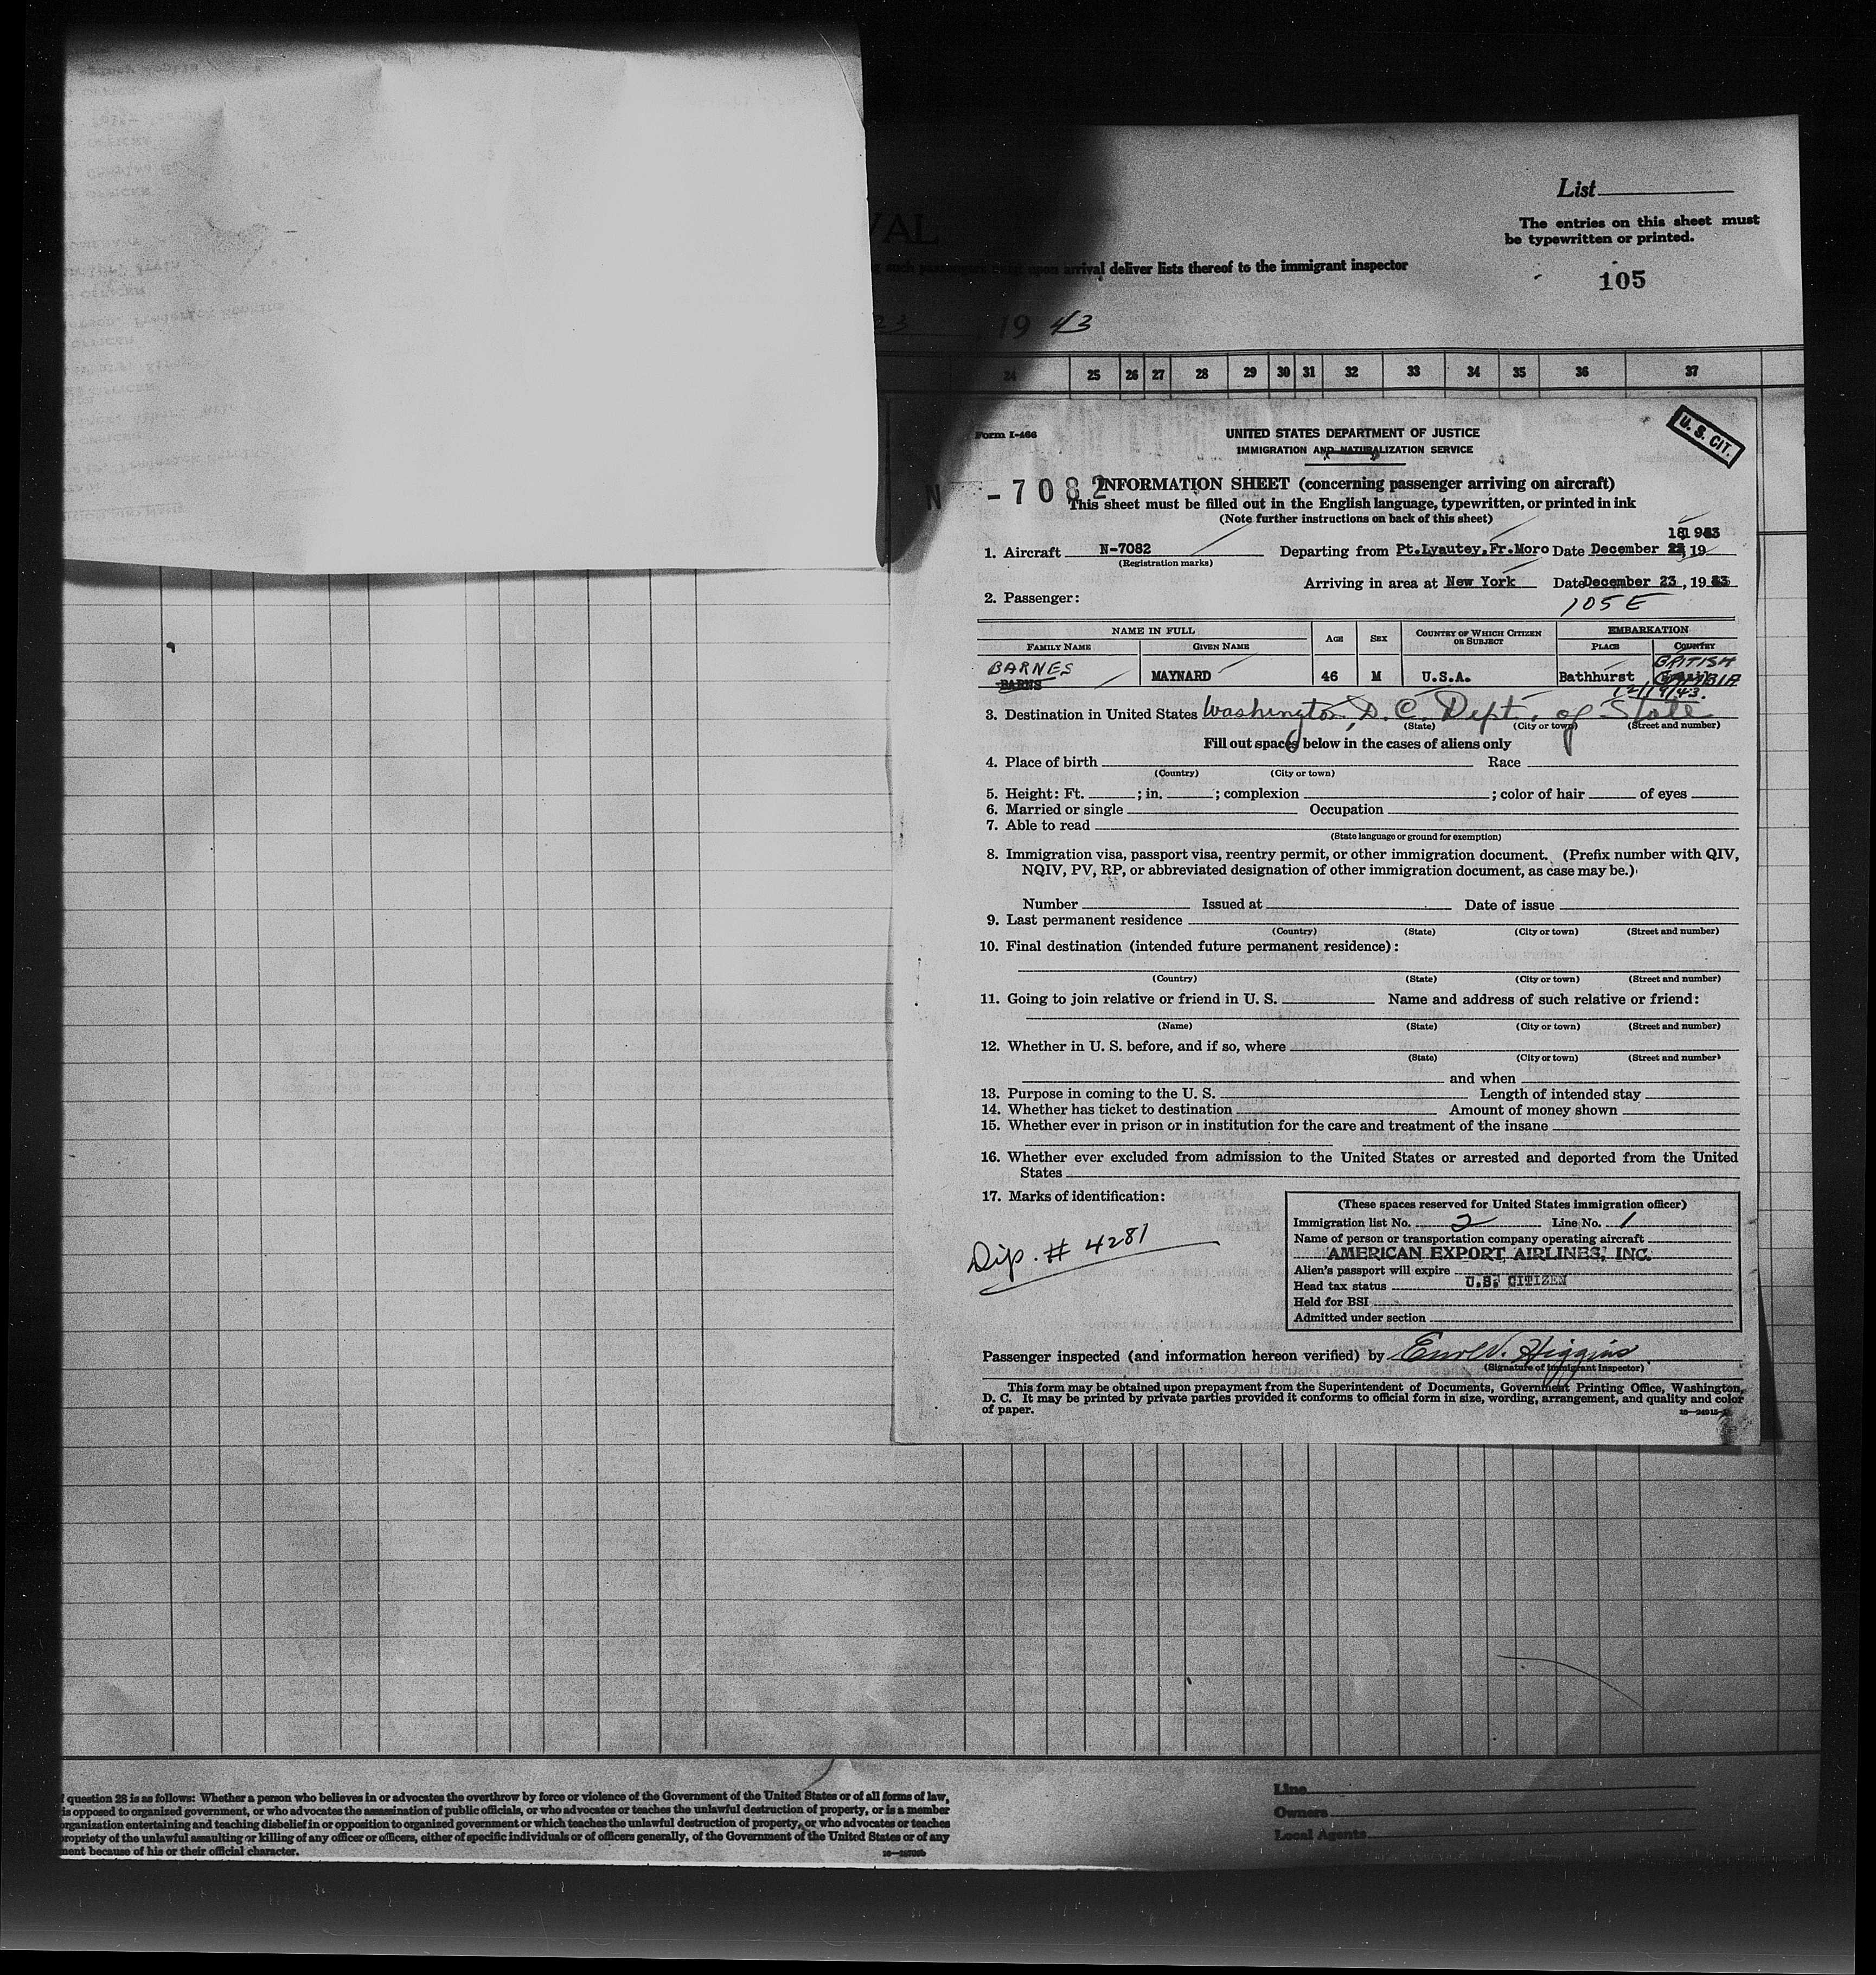 List
The entries on this sheet must
be typewritten or printed.
VAL
arrival deliver lists thereof to the immigrant inspector
105
23 , 19 43
24 25 26 27 28 29 30 31 32 33 34 35 36 37
Form I-466
UNITED STATES DEPARTMENT OF JUSTICE
IMMIGRATION AND NATURALIZATION SERVICE
U. S. CIT.
N - 7 0 8 2
INFORMATION SHEET (concerning passenger arriving on aircraft)
This sheet must be filled out in the English language, typewritten, or printed in ink
(Note further instructions on back of this sheet)
1. Aircraft N-7082 Departing from Pt.Lyautey,Fr.Moro Date December 22, 19
(Registration marks)
Arriving in area at New York Date December 23, 19 43
2. Passenger:
105 E
NAME IN FULL AGE SEX COUNTRY OF WHICH CITIZEN OR SUBJECT EMBARKATION
FAMILY NAME GIVEN NAME PLACE COUNTRY
BARNES BRITISH
BARNS MAYNARD 46 M U.S.A. Bathhurst GAMBIA
12/19/43.
3. Destination in United States Washington, D. C. Dept. of State
(State) (City or town) (Street and number)
Fill out spaces below in the cases of aliens only
4. Place of birth Race
(Country) (City or town)
5. Height: Ft. ; in. ; complexion ; color of hair of eyes
6. Married or single Occupation
7. Able to read
(State language or ground for exemption)
8. Immigration visa, passport visa, reentry permit, or other immigration document. (Prefix number with QIV,
NQIV, PV, RP, or abbreviated designation of other immigration document, as case may be.)
Number Issued at Date of issue
9. Last permanent residence
(Country) (State) (City or town) (Street and number)
10. Final destination (intended future permanent residence):
(Country) (State) (City or town) (Street and number)
11. Going to join relative or friend in U. S. Name and address of such relative or friend:
(Name) (State) (City or town) (Street and number)
12. Whether in U. S. before, and if so, where
(State) (City or town) (Street and number)
and when
13. Purpose in coming to the U. S. Length of intended stay
14. Whether has ticket to destination Amount of money shown
15. Whether ever in prison or in institution for the care and treatment of the insane
16. Whether ever excluded from admission to the United States or arrested and deported from the United
States
17. Marks of identification:
Dip. # 4281
(These spaces reserved for United States immigration officer)
Immigration list No. 2 Line No. 1
Name of person or transportation company operating aircraft
AMERICAN EXPORT AIRLINES, INC.
Alien's passport will expire
Head tax status U.S. CITIZEN
Held for BSI
Admitted under section
Passenger inspected (and information hereon verified) by Higgins
(Signature of Immigrant Inspector)
This form may be obtained upon prepayment from the Superintendent of Documents, Government Printing Office, Washington,
D. C. It may be printed by private parties provided it conforms to official form in size, wording, arrangement, and quality and color
of paper.
question 28 is as follows: Whether a person who believes in or advocates the overthrow by force or violence of the Government of the United States or of all forms of law,
is opposed to organized government, or who advocates the assassination of public officials, or who advocates or teaches the unlawful destruction of property, or is a member
organization entertaining and teaching disbelief in or opposition to organized government or which teaches the unlawful destruction of property, or who advocates or teaches
ropriety of the unlawful assaulting or killing of any officer or officers, either of specific individuals or of officers generally, of the Government of the United States or of any
ment because of his or their official character.
Line
Owners
Local Agents